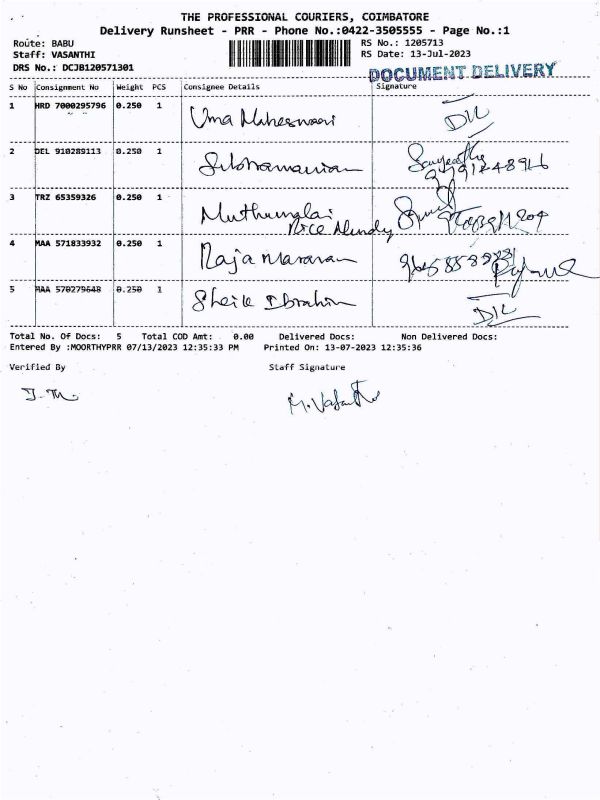 THE PROFESSIONAL COURIERS, COIMBATORE
Delivery Runsheet - PRR - Phone No.:0422-3505555 - Page No.:1
Route: BABU
RS No.: 1205713
Staff: VASANTHI
RS Date: 13-Jul-2023
DRS No.: DCJB120571301
DOCUMENT DELIVERY
S No Consignment No Weight PCS Consignee Details Signature
1 HRD 7000295796 0.250 1 Uma Maheswari D/L
2 DEL 910289113 0.250 1 Subramanian
3 TRZ 65359326 0.250 1 Muthumalai
Rice Mundy
4 MAA 571833932 0.250 1 Raja Mararan
5 MAA 570279648 0.250 1 Sheik Ibrahim D/L
Total No. Of Docs: 5 Total COD Amt: 0.00 Delivered Docs: Non Delivered Docs:
Entered By :MOORTHYPRR 07/13/2023 12:35:33 PM Printed On: 13-07-2023 12:35:36
Verified By Staff Signature
M. Vasanthi